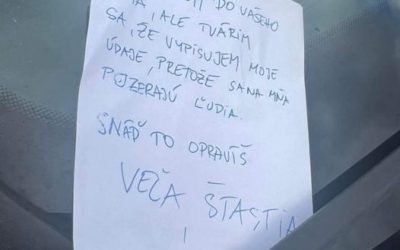 DO VAŠEHO
, ALE TVÁRIM
SA, ŽE VYPISUJEM MOJE
ÚDAJE, PRETOŽE SA NA MŇA
POZERAJÚ ĽUDIA.
SNÁĎ TO OPRAVÍŠ
VEĽA ŠŤASTIA